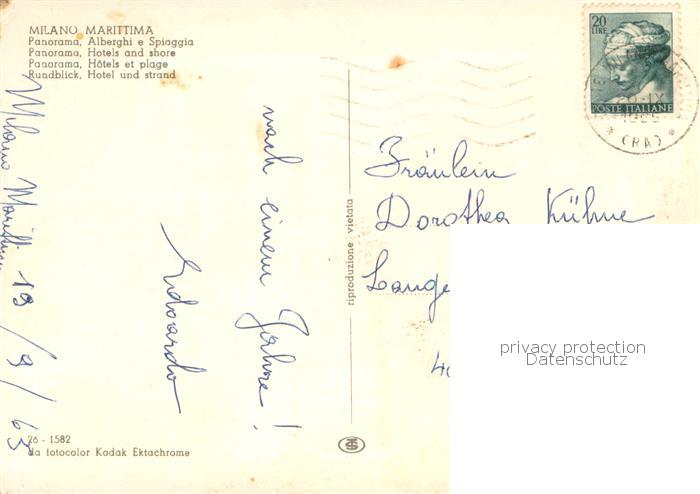 MILANO MARITTIMA
Panorama, Alberghi e Spiaggia
Panorama, Hotels and shore
Panorama, Hôtels et plage
Rundblick, Hotel und strand
Milano Maritt 19/9/65
nach einem Jahre!
Edoardo
26 - 1582
da fotocolor Kodak Ektachrome
riproduzione vietata
20
LIRE
POSTE ITALIANE
(RA)
Fräulein
Dorothea Kühne
Lange
privacy protection
Datenschutz